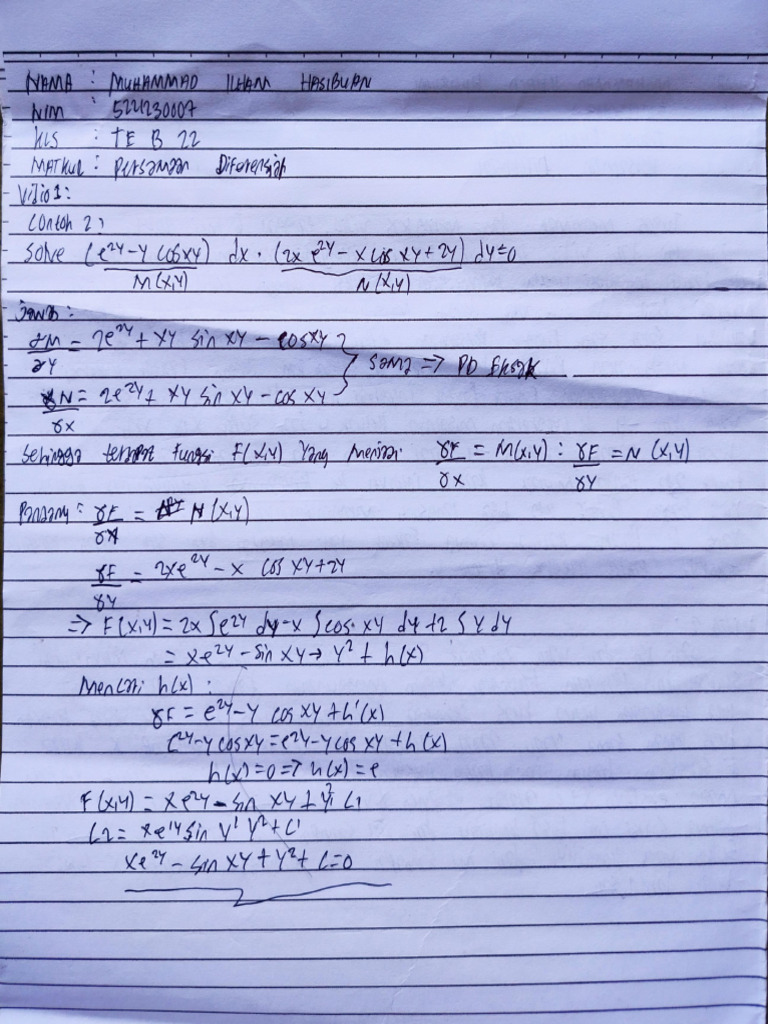 NAMA : MUHAMMAD ILHAM HASIBUAN
NIM : 5221230007
KLS : TE B 22
MATKUL : Persamaan Diferensial
Vidio 1 :
Contoh 2 :
Solve (e^2y - y cos xy) dx · (2x e^2y - x cos xy + 2y) dy = 0
M(x,y) N(x,y)
Jawab :
∂M/∂y = 2e^2y + xy sin xy - cos xy
Sama => PD Eksak
∂N/∂x = 2e^2y + xy sin xy - cos xy
Sehingga terdapat fungsi F(x,y) yang ∂F/∂x = M(x,y) : ∂F/∂y = N(x,y)
Pandang : ∂F/∂x = N(x,y)
∂F/∂y = 2xe^2y - x cos xy + 2y
=> F(x,y) = 2x ∫e^2y dy - x ∫cos xy dy + 2 ∫y dy
= xe^2y - sin xy + y^2 + h(x)
Mencari h(x) :
∂F = e^2y - y cos xy + h'(x)
e^2y - y cos xy = e^2y - y cos xy + h(x)
h(x) = 0 => h(x) = e
F(x,y) = xe^2y - sin xy + y^2 C1
C2 = xe^iy sin y^1 y^2 + C1
xe^2y - sin xy + y^2 + C = 0